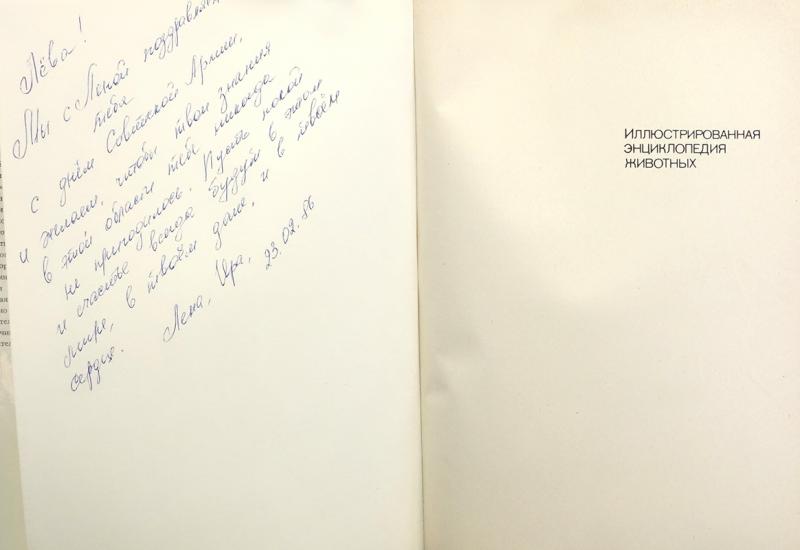 Лёва!
Мы с Леной поздравляем
тебя
с днём Советской Армии,
и желаем, чтобы твои знания
в этой области тебе никогда
не пригодилось. Пусть покой
и счастье всегда будут в этом
мире, в твоём доме, и в твоём
сердце. Лена, Ира,
23.02.86
ИЛЛЮСТРИРОВАННАЯ
ЭНЦИКЛОПЕДИЯ
ЖИВОТНЫХ